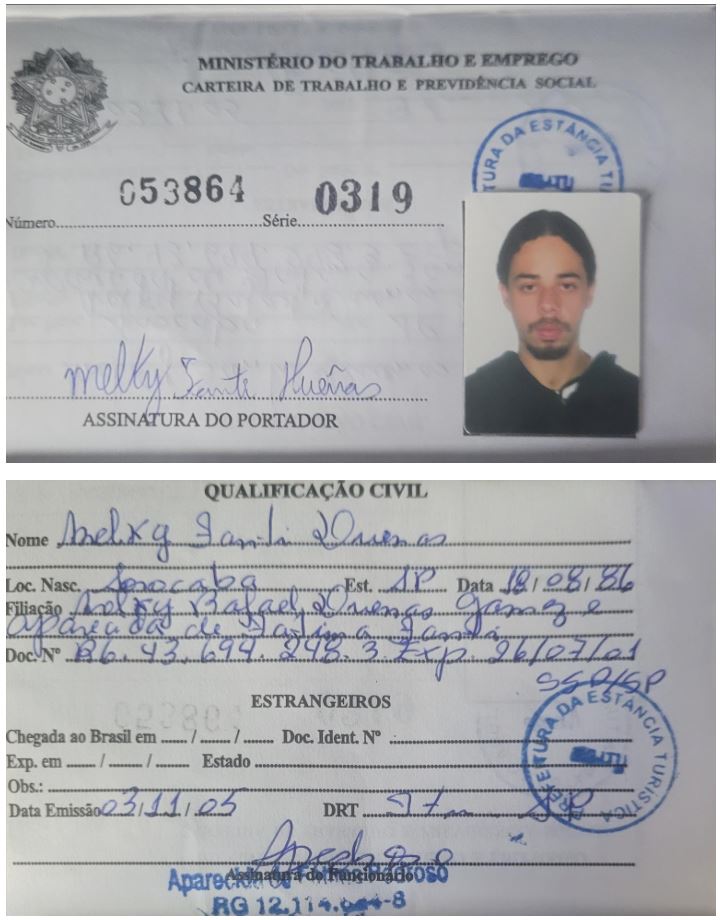 MINISTÉRIO DO TRABALHO E EMPREGO
CARTEIRA DE TRABALHO E PREVIDÊNCIA SOCIAL
TURA DA ESTÂNCIA TU
053864 0319
Número Série
melky Santi Hueñas
ASSINATURA DO PORTADOR
QUALIFICAÇÃO CIVIL
Nome Melky Santi Duenas
Loc. Nasc. Sorocaba Est. SP Data 18/08/86
Filiação Melky Rafael Duenas Gamez e
Aparecida de Fatima Santi
Doc. Nº RG. 43.694.248.3 Exp. 26/07/01
SSP/SP
ESTRANGEIROS
Chegada ao Brasil em / / Doc. Ident. Nº
Exp. em / / Estado
Obs.:
Data Emissão 03/11/05 DRT SP
PREFEITURA DA ESTÂNCIA TURÍSTICA
Assinatura do Funcionário
RG 12.114. -8